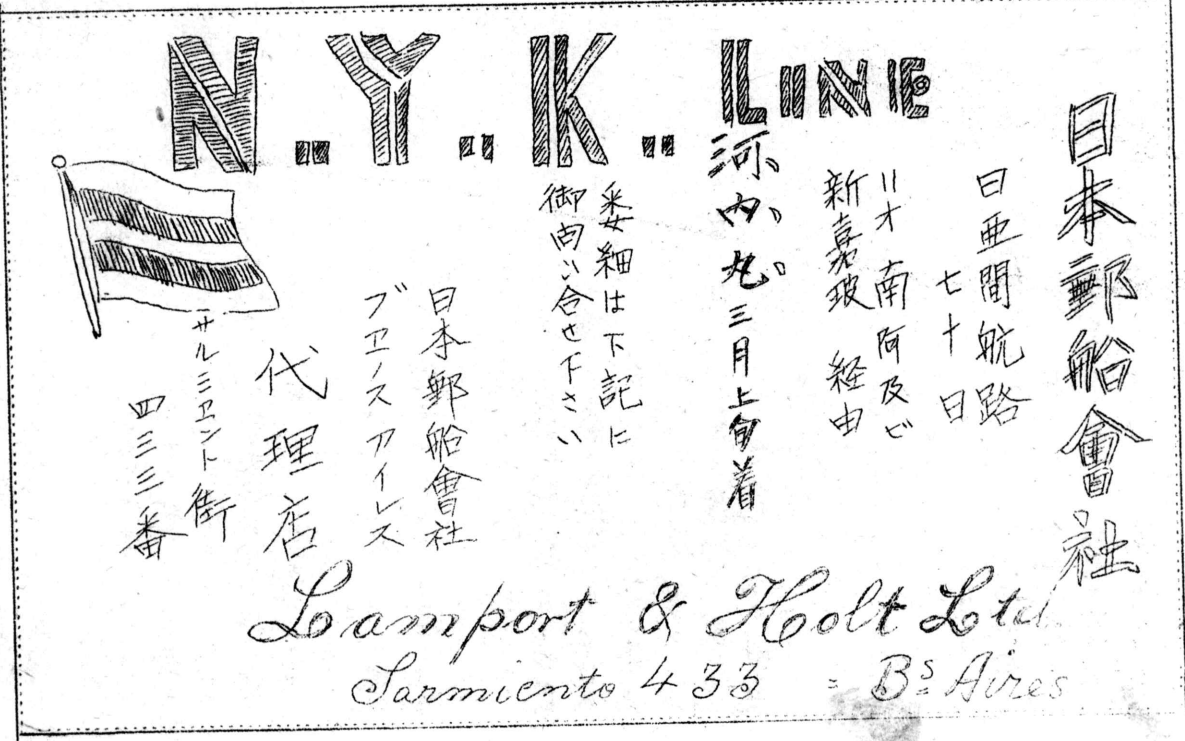 N.Y.K. LINE
日本郵船會社
日亜間航路
七十日
リオ 南阿及ビ
新嘉玻 経由
河内丸 三月上旬着
委細は下記に
御問い合せ下さい
日本郵船會社
ブエノス アイレス
代理店
サルミエント街
四三三番
Lamport & Holt Ltd
Sarmiento 433 = Bs Aires